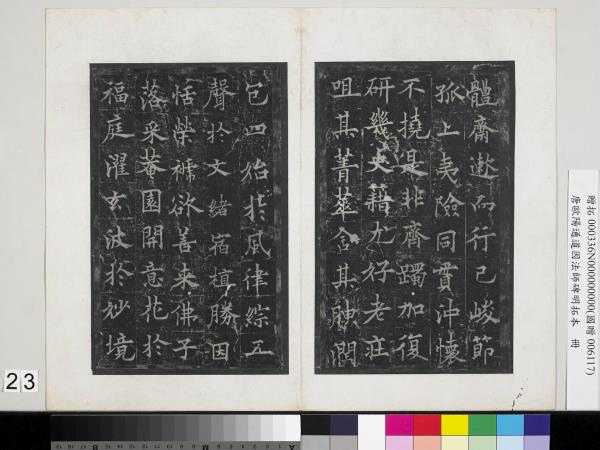 體齋遬而行已峻節
孤上夷險同貫沖懷
不撓是非齊躅加復
研幾史籍尤好老莊
咀其菁華含其腴潤
包四始於風律綜五
聲於文緒宿植勝因
恬榮褫欲善來佛子
落采菴園開意花於
福庭濯玄波於妙境
贈拓 000336N000000000(國贈 006117)
唐歐陽通道因法師碑明拓本 冊
23